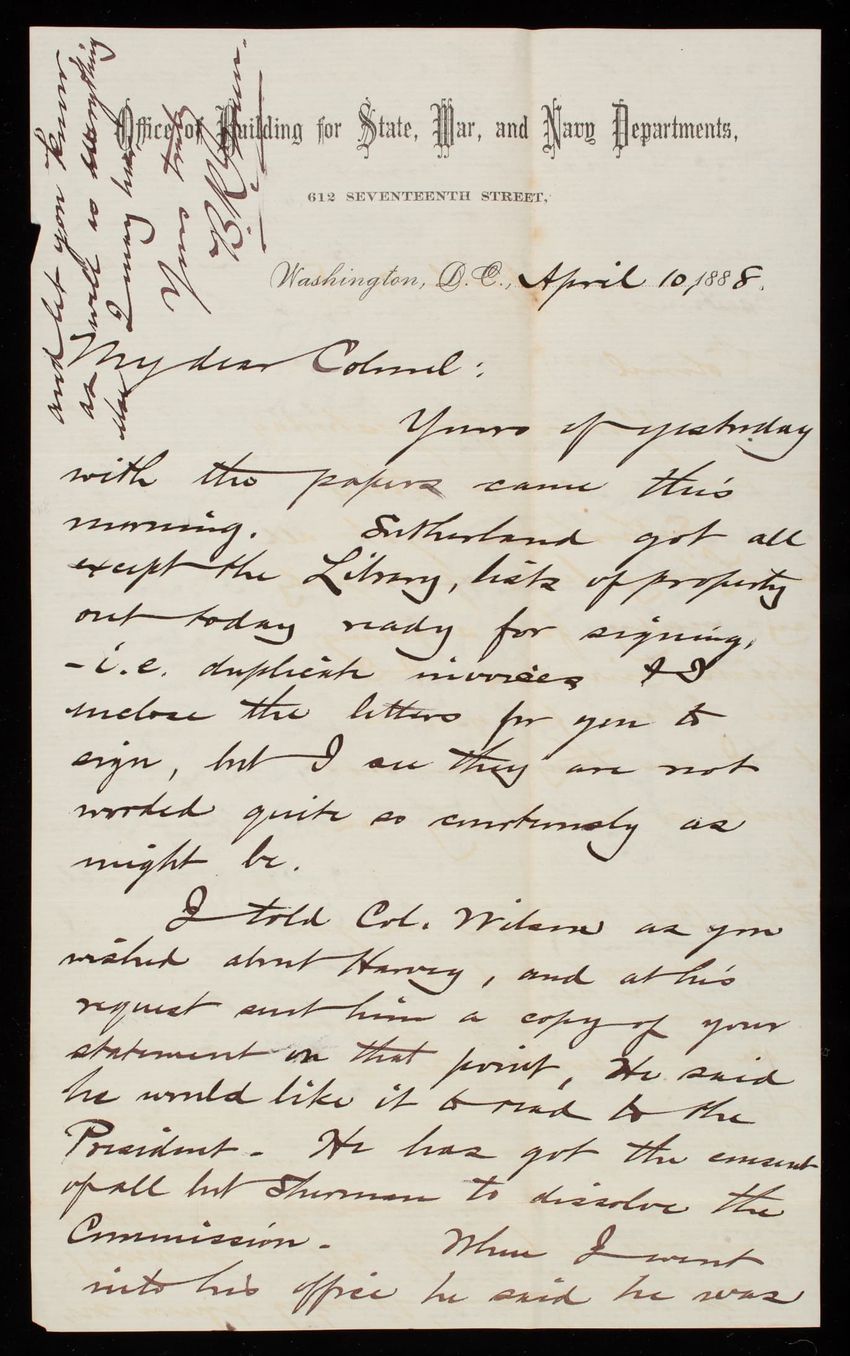 Office of Building for State, War, and Navy Departments,
612 SEVENTEENTH STREET,
Washington, D.C., April 10, 1888.
My dear Colonel:
Yours of yesterday
with the papers came this
morning. Sutherland got all
except the Library, lists of property
out today ready for signing,
- i.e. duplicate invoices & I
inclose the letters for you to
sign, but I see they are not
worded quite so courteously as
might be.
I told Col. Wilson as you
wished about Harvey, and at his
request sent him a copy of your
statement on that point, He said
he would like it to read to the
President. He has got the consent
of all but Sherman to dissolve the
Commission. When I went
into his office he said he was
and let you know
as well as everything
else I may hear
Yours truly
B.R. Green.